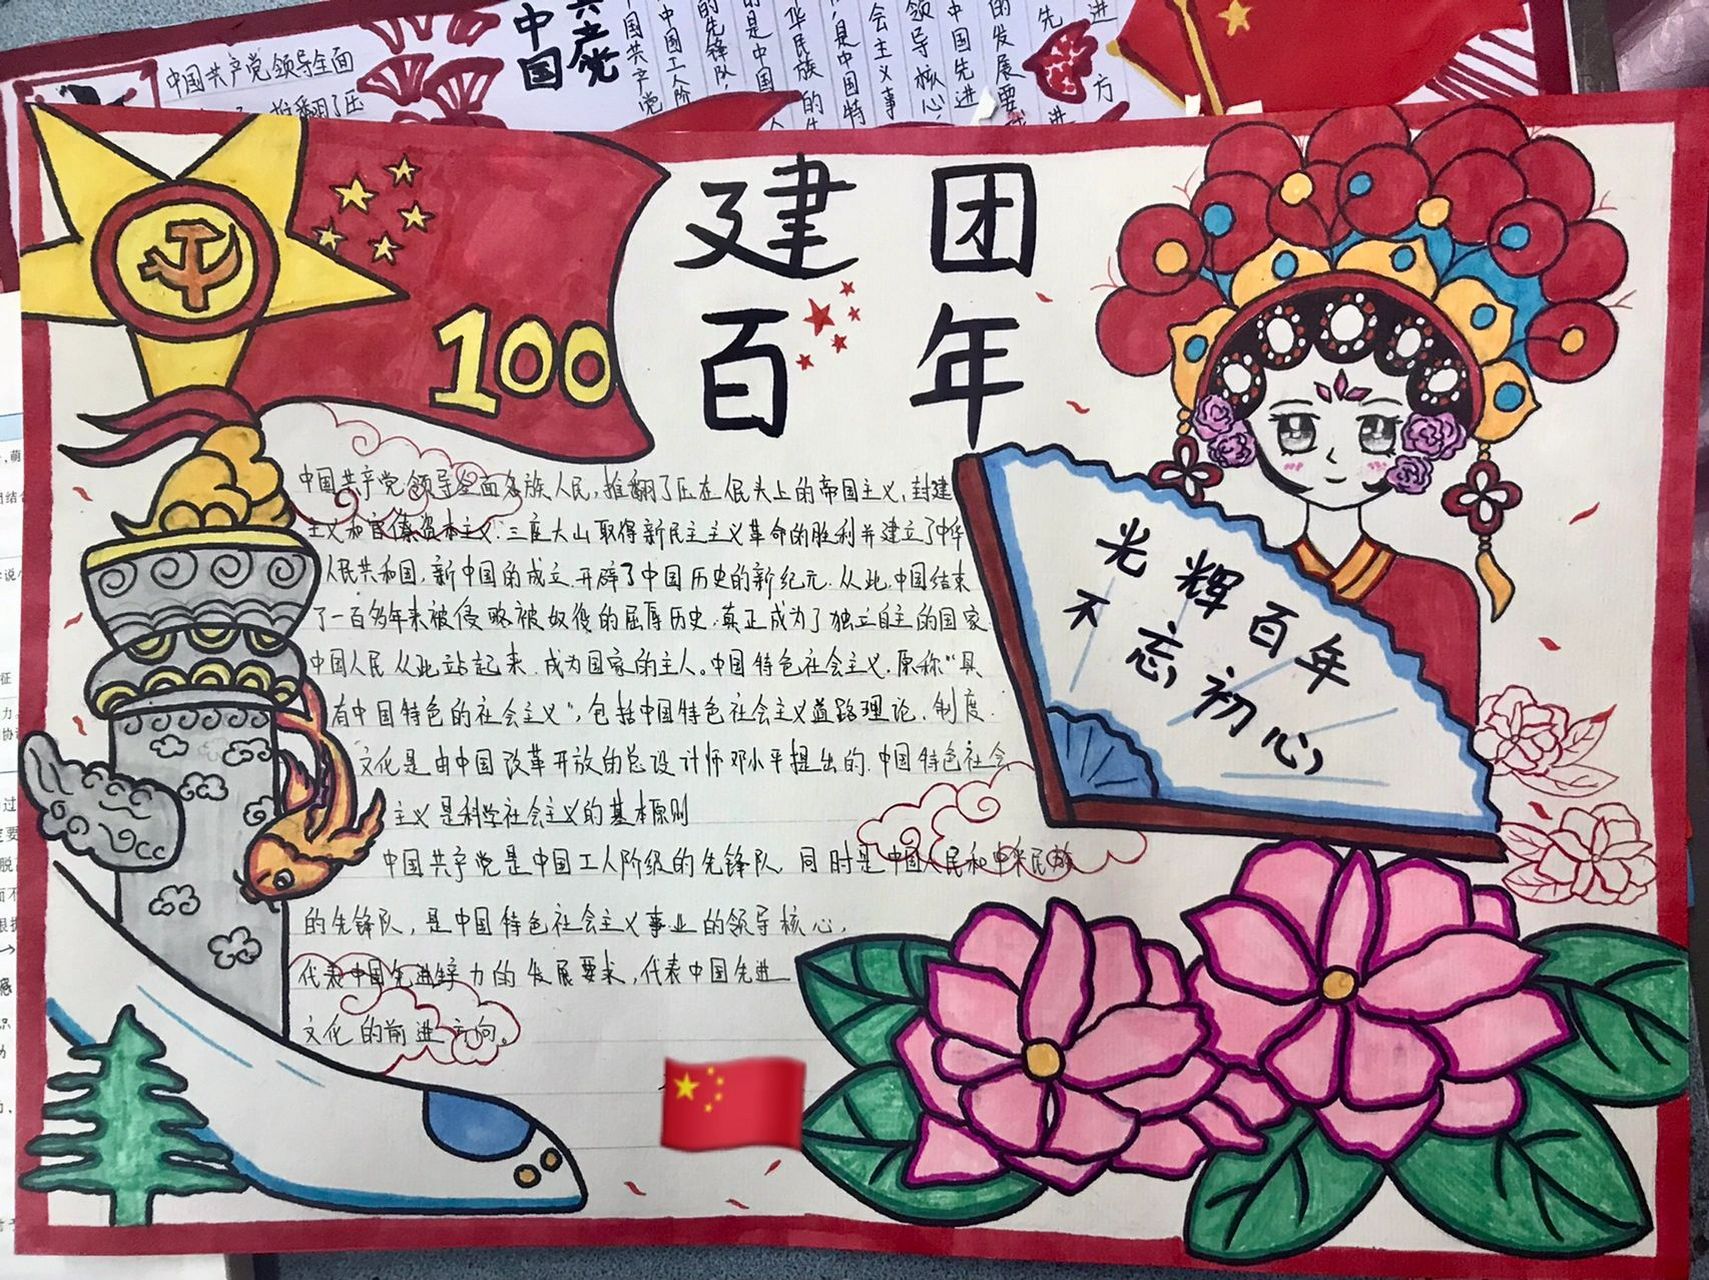 中国共产党领导全面
推翻了压
中国
共产党
建团
百年
100
中国共产党领导全面各族人民,推翻了压在人民头上的帝国主义,封建
主义和官僚资本主义:三座大山取得新民主主义革命的胜利并建立了中华
人民共和国,新中国的成立.开辟了中国历史的新纪元.从此,中国结束
了一百多年来被侵略被奴役的屈辱历史.真正成为了独立自主的国家.
中国人民从此站起来.成为国家的主人。中国特色社会主义.原称“具
有中国特色的社会主义”,包括中国特色社会主义道路理论.制度.
文化是由中国改革开放的总设计师邓小平提出的.中国特色社会
主义是科学社会主义的基本原则
中国共产党是中国工人阶级的先锋队.同时是中国人民和中华民族
的先锋队,是中国特色社会主义事业的领导核心,
代表中国先进生产力的发展要求,代表中国先进
文化的前进方向。
光辉百年
不忘初心